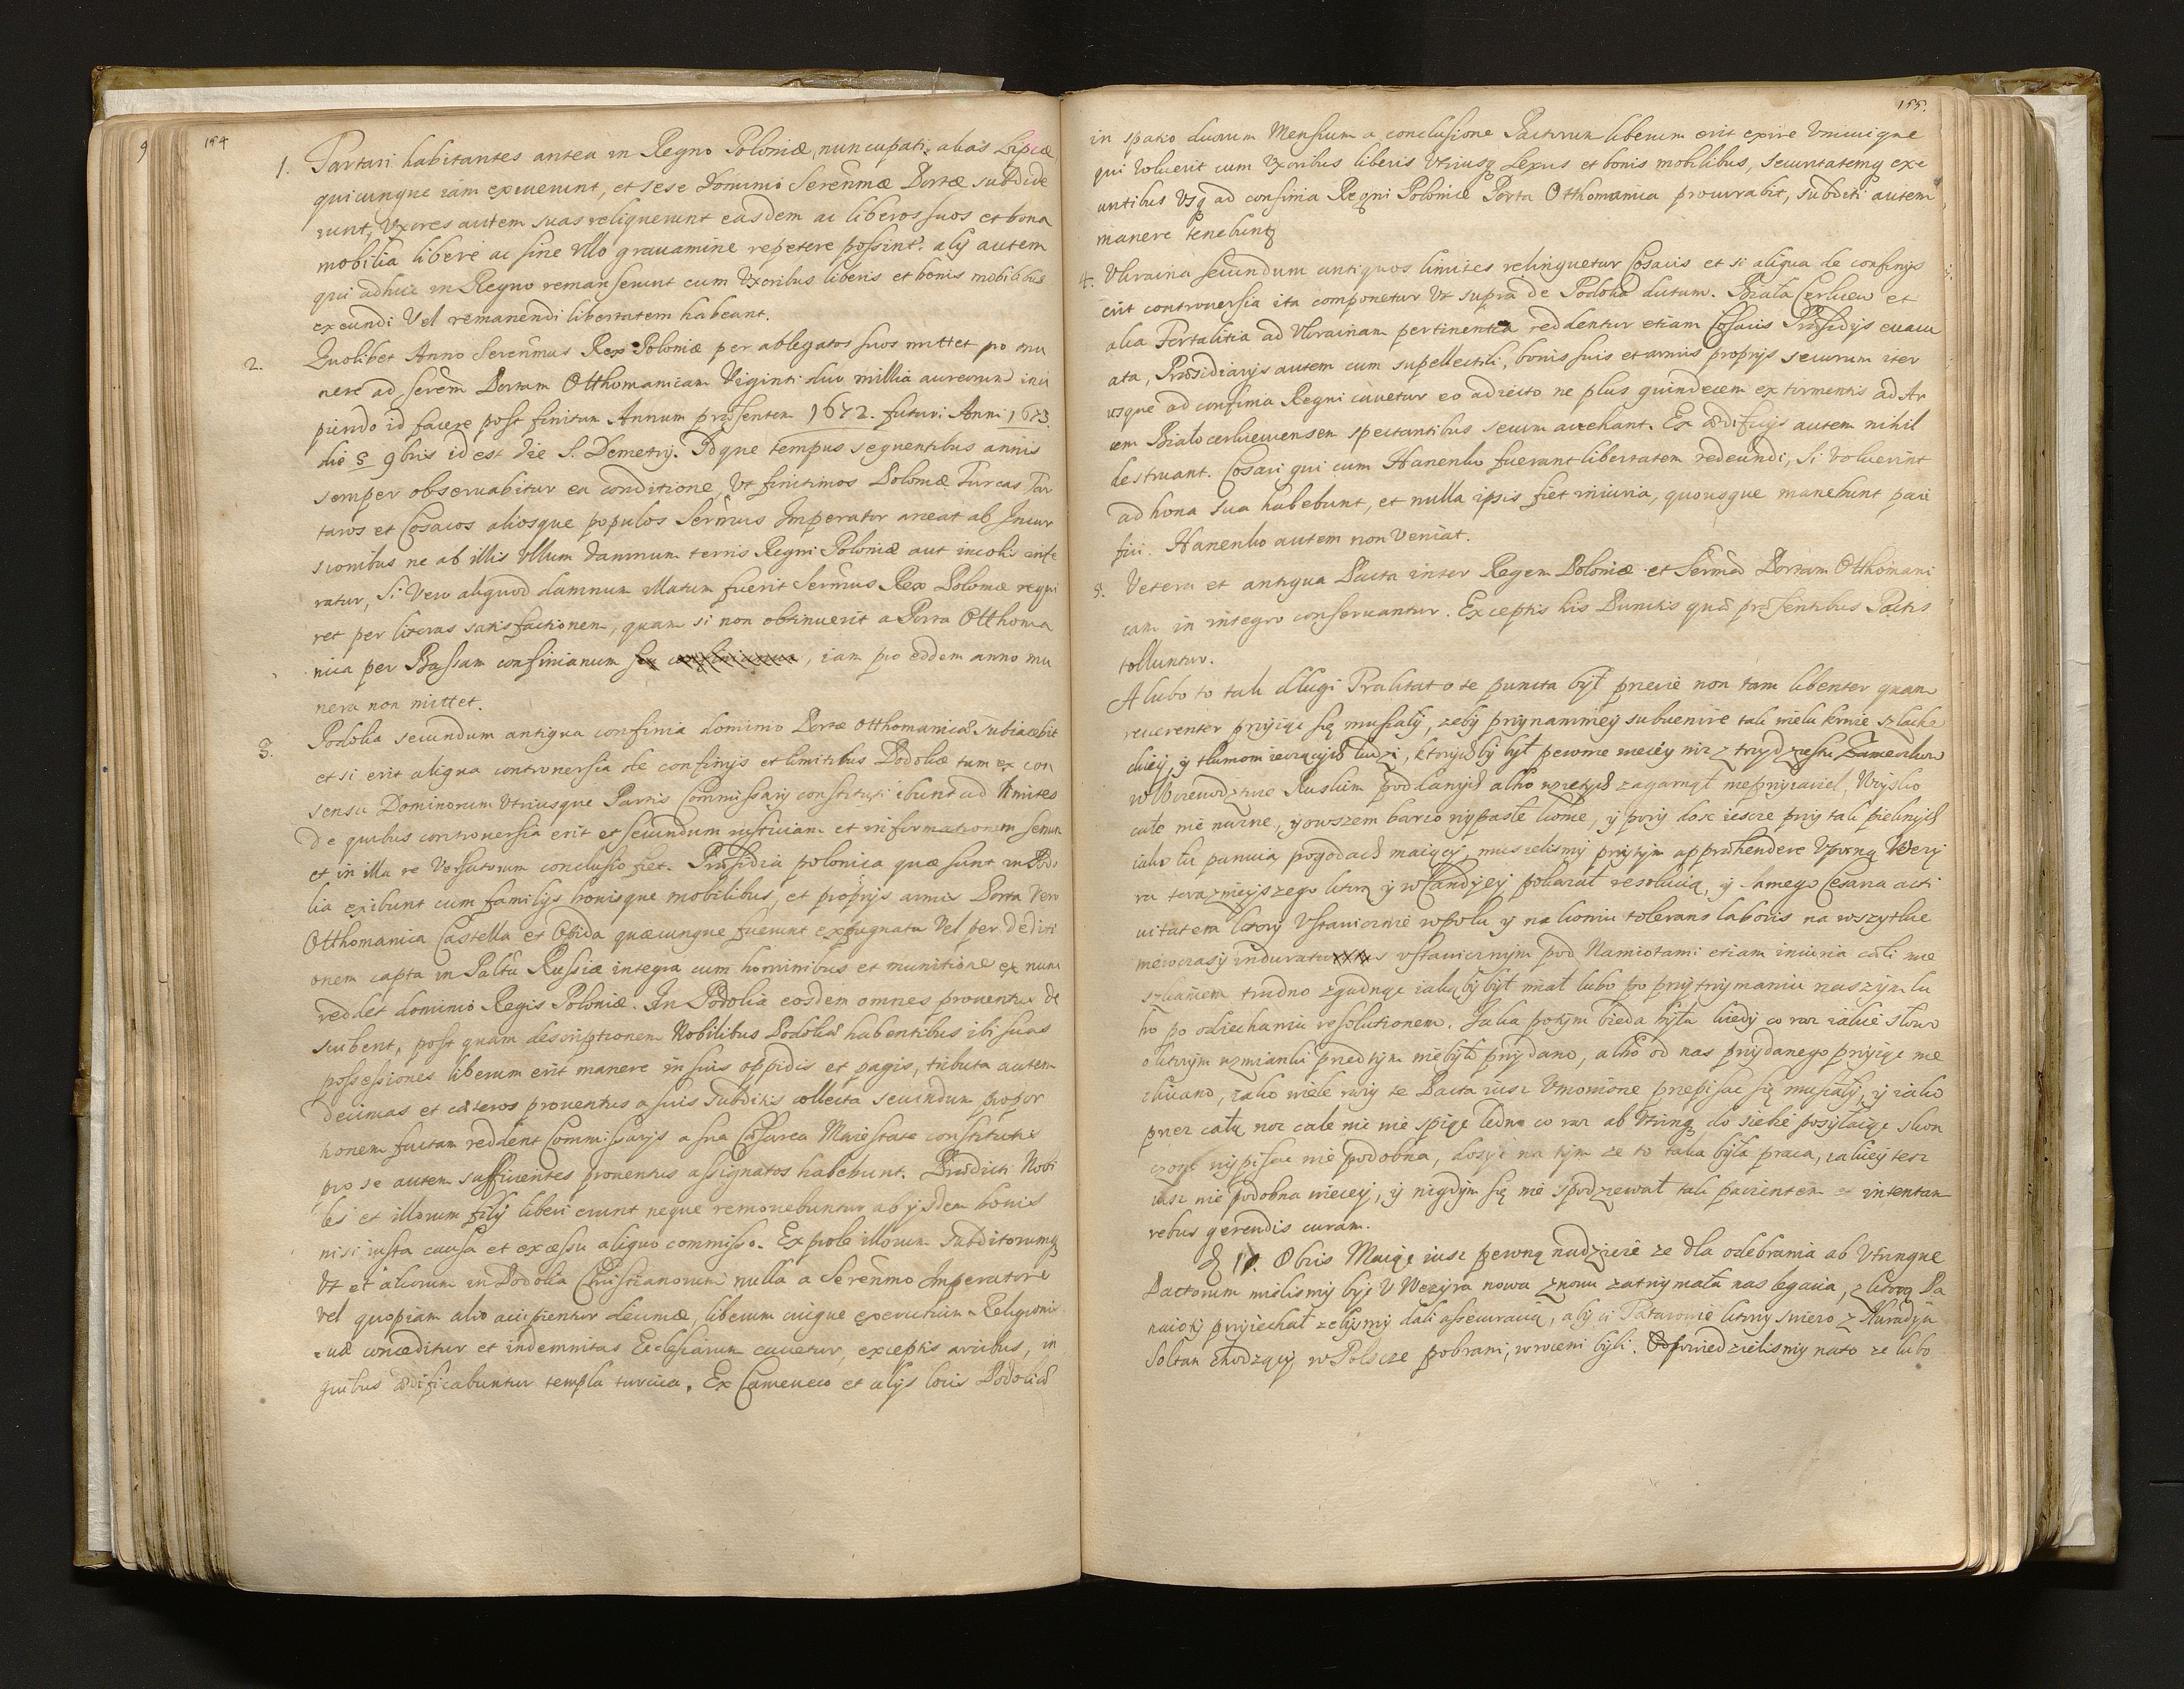 154
1. Tartari habitantes antea in Regno Poloniæ, nuncupati, alias Lipcæ
quicunque iam exiuerunt, et sese dominio Serenmæ Portæ subdide
runt, Uxores autem suas reliquerunt easdem ac liberos suos et bona
mobilia libere ac sine ullo grauamine repetere possint. alij autem
qui adhuc in Regno remanserunt cum Uxoribus liberis et bonis mobilibus
exeundi Vel remanendi libertatem habeant.
2. Quolibet Anno Serenmus Rex Poloniæ per ablegatos suos mittet pro mu
nere ad Serem Portam Otthomanicam Viginti duo millia aureorum inci
piendo id facere post finitum Annum præsentem 1672. futuri Anni 1673.
die 5 9bris id est die S. Demetrij. Idque tempus sequentibus annis
semper obseruabitur ea conditione, Ut finitimos Poloniæ Turcas, Tar
taros et Cosacos aliosque populos Sermus Imperator arceat ab Incur
sionibus ne ab illis Ullum damnum terris Regni Poloniæ aut incolis infe
ratur, Si Vero aliquod damnum illatum fuerit Sermus Rex Poloniæ requi
ret per literas satisfactionem, quam si non obtinuerit a Porta Otthoma
nica per Bassam confinianum, iam pro eodem anno mu
nera non mittet.
3. Podolia secundum antiqua confinia dominio Portæ Otthomanicæ Subiacebit
et si erit aliqua controuersia de confinijs et limitibus Podoliæ tum ex con
sensu Dominorum Utriusque Partis Commissarij constituti ibunt ad limites
de quibus controuersia erit et secundum iustitiam et informationem senum
et in illa re Versatorum conclusio fiet. Præsidia polonica quæ sunt in Podo
lia exibunt cum familijs bonisque mobilibus, et proprijs armis Porta Vero
Otthomanica Castella et Opida quæcunque fuerunt expugnata Vel per dediti
onem capta in Paltu Russiæ integra cum hominibus et munitione ex nunc
reddet dominio Regis Poloniæ. In Podolia eosdem omnes prouentus de
scribent, post quam descriptionem Nobilibus Podoliæ habentibus ibi suas
possessiones liberum erit manere in suis oppidis et pagis, tributa autem
decimas et cæteros prouentus a suis Subditis collecta secundum propor
tionem factam reddent Commissarijs a sua Cæsarea Maiestate constitutis
pro se autem sufficientes prouentus assignatos habebunt. Prædicti Nobi
les et illorum filij liberi erunt neque remouebuntur ab ijsdem bonis
nisi iusta causa et excessu aliquo commisso. Ex prole illorum Subditorumq
Ut et aliorum in Podolia Christianorum nulla a Serenmo Imperatore
vel quopiam alio accipientur decimæ, liberum cuique exercitium Religionis
suæ conceditur et indemnitas Ecclesiarum cauetur, exceptis arcibus, in
quibus ædificabuntur templa turcica. Ex Cameneco et alijs locis Podoliæ
155.
in spatio duorum Mensium a conclusione Pactorum liberum erit exire Unicuique
qui Voluerit cum Uxoribus liberis Utriusq Sexus et bonis mobilibus, securitatemq exe
untibus Usq ad confinia Regni Poloniæ Porta Otthomanica procurabit, subditi autem
manere tenebuntur
4. Ukraina secundum antiquos limites relinquetur Cosacis et si aliqua de confinijs
erit controuersia ita componetur Ut supra de Podolia dictum. Biała Cerkiew et
alia Fortalitia ad Ukrainam pertinentia reddentur etiam Cosacis Præsidijs euacu
ata, Præsidiarijs autem cum supellectili, bonis suis et armis proprijs securum iter
usque ad confinia Regni cauetur eo adiecto ne plus quindecem ex tormentis ad Ar
cem Białocerkieuiensem spectantibus secum auehant. Ex ædificijs autem nihil
destruant. Cosaci qui cum Hanenko fuerunt libertatem redeundi, Si Voluerint
ad bona sua habebunt, et nulla ipsis fiet iniuria, quousque manebunt paci
fici. Hanenko autem non Veniat.
5. Vetera et antiqua Pacta inter Regem Poloniæ et Sermā Portam Otthomani
cam in integro conseruantur. Exceptis his Punctis quæ præsentibus Pactis
tolluntur.
A lubo to tak długi Traktat o te puncta był przecie non tam libenter quam
reuerenter przyiąc się musiały, zeby przynamniey subuenire tak wielu krwie szlache
ckiey, y tłumom ięczących ludzi, ktorych by był pewnie więcey niz z trzydzieslu
w Woiewodztwie Ruskim poddanych albo wzietych zagarnął nieprzyiaciel, Woysko
całe nie nużne, y owszem barzo wypasłe konie, y przy dosc ieszcze przy tak pieknych
iako tu panuią pogodach maiący, musielismy przytym apprehendere Upornę Wezy
ra teraznieyszego ktory y w Candyey pokazał resolucią, y samego Cesarza acti
uitatem ktory Ustawicznie w polu y na koniu tolerans laboris na wszytkie
niewczasy induratus ustawicznym pod Namiotami etiam iniuria cæli mie
szkaniem trudno zgadnąc iaką by był miał lubo po przytrzymaniu naszym lu
bo po odiechaniu resolutionem. Taka potym bieda była kiedy co raz iakie słowo
o ktorym wzmianki przed tym nie było przydano, albo od nas przydanego przyiąc nie
chciano, iako wiele razy te Pacta iusz Umowione przepisac się musiały, y iako
przez całą noc cale nic nie spiąc ledno co raz ab Utrinq do siebie posyłaiąc skon
czone wypisac nie podobna, dosyc na tym ze to taka była praca, iakiey tesz
iusz nie podobna wiecey, y nigdym się nie spodziewał tak pacientem et intentam
rebus gerendis curam.
D 17. 8bris Maiąc iusz pewną nadzieię ze dla odebrania ab Utrinque
Pactorum mielismy byc U Wezyra nowa znowu zatrzymała nas legacia, z ktorą Pa
naioty przyiechał zebysmy dali assecuracią, aby ci Tatarowie ktorzy swiezo z Nuradyn
Soltan chodzący w Polscze pobrani, wroceni byli. Odpowiedzielismy na to ze lubo